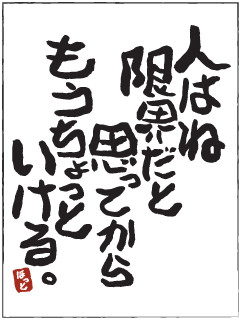 人はね
限界だと
思ってから
もうちょっと
いける。
ほっと